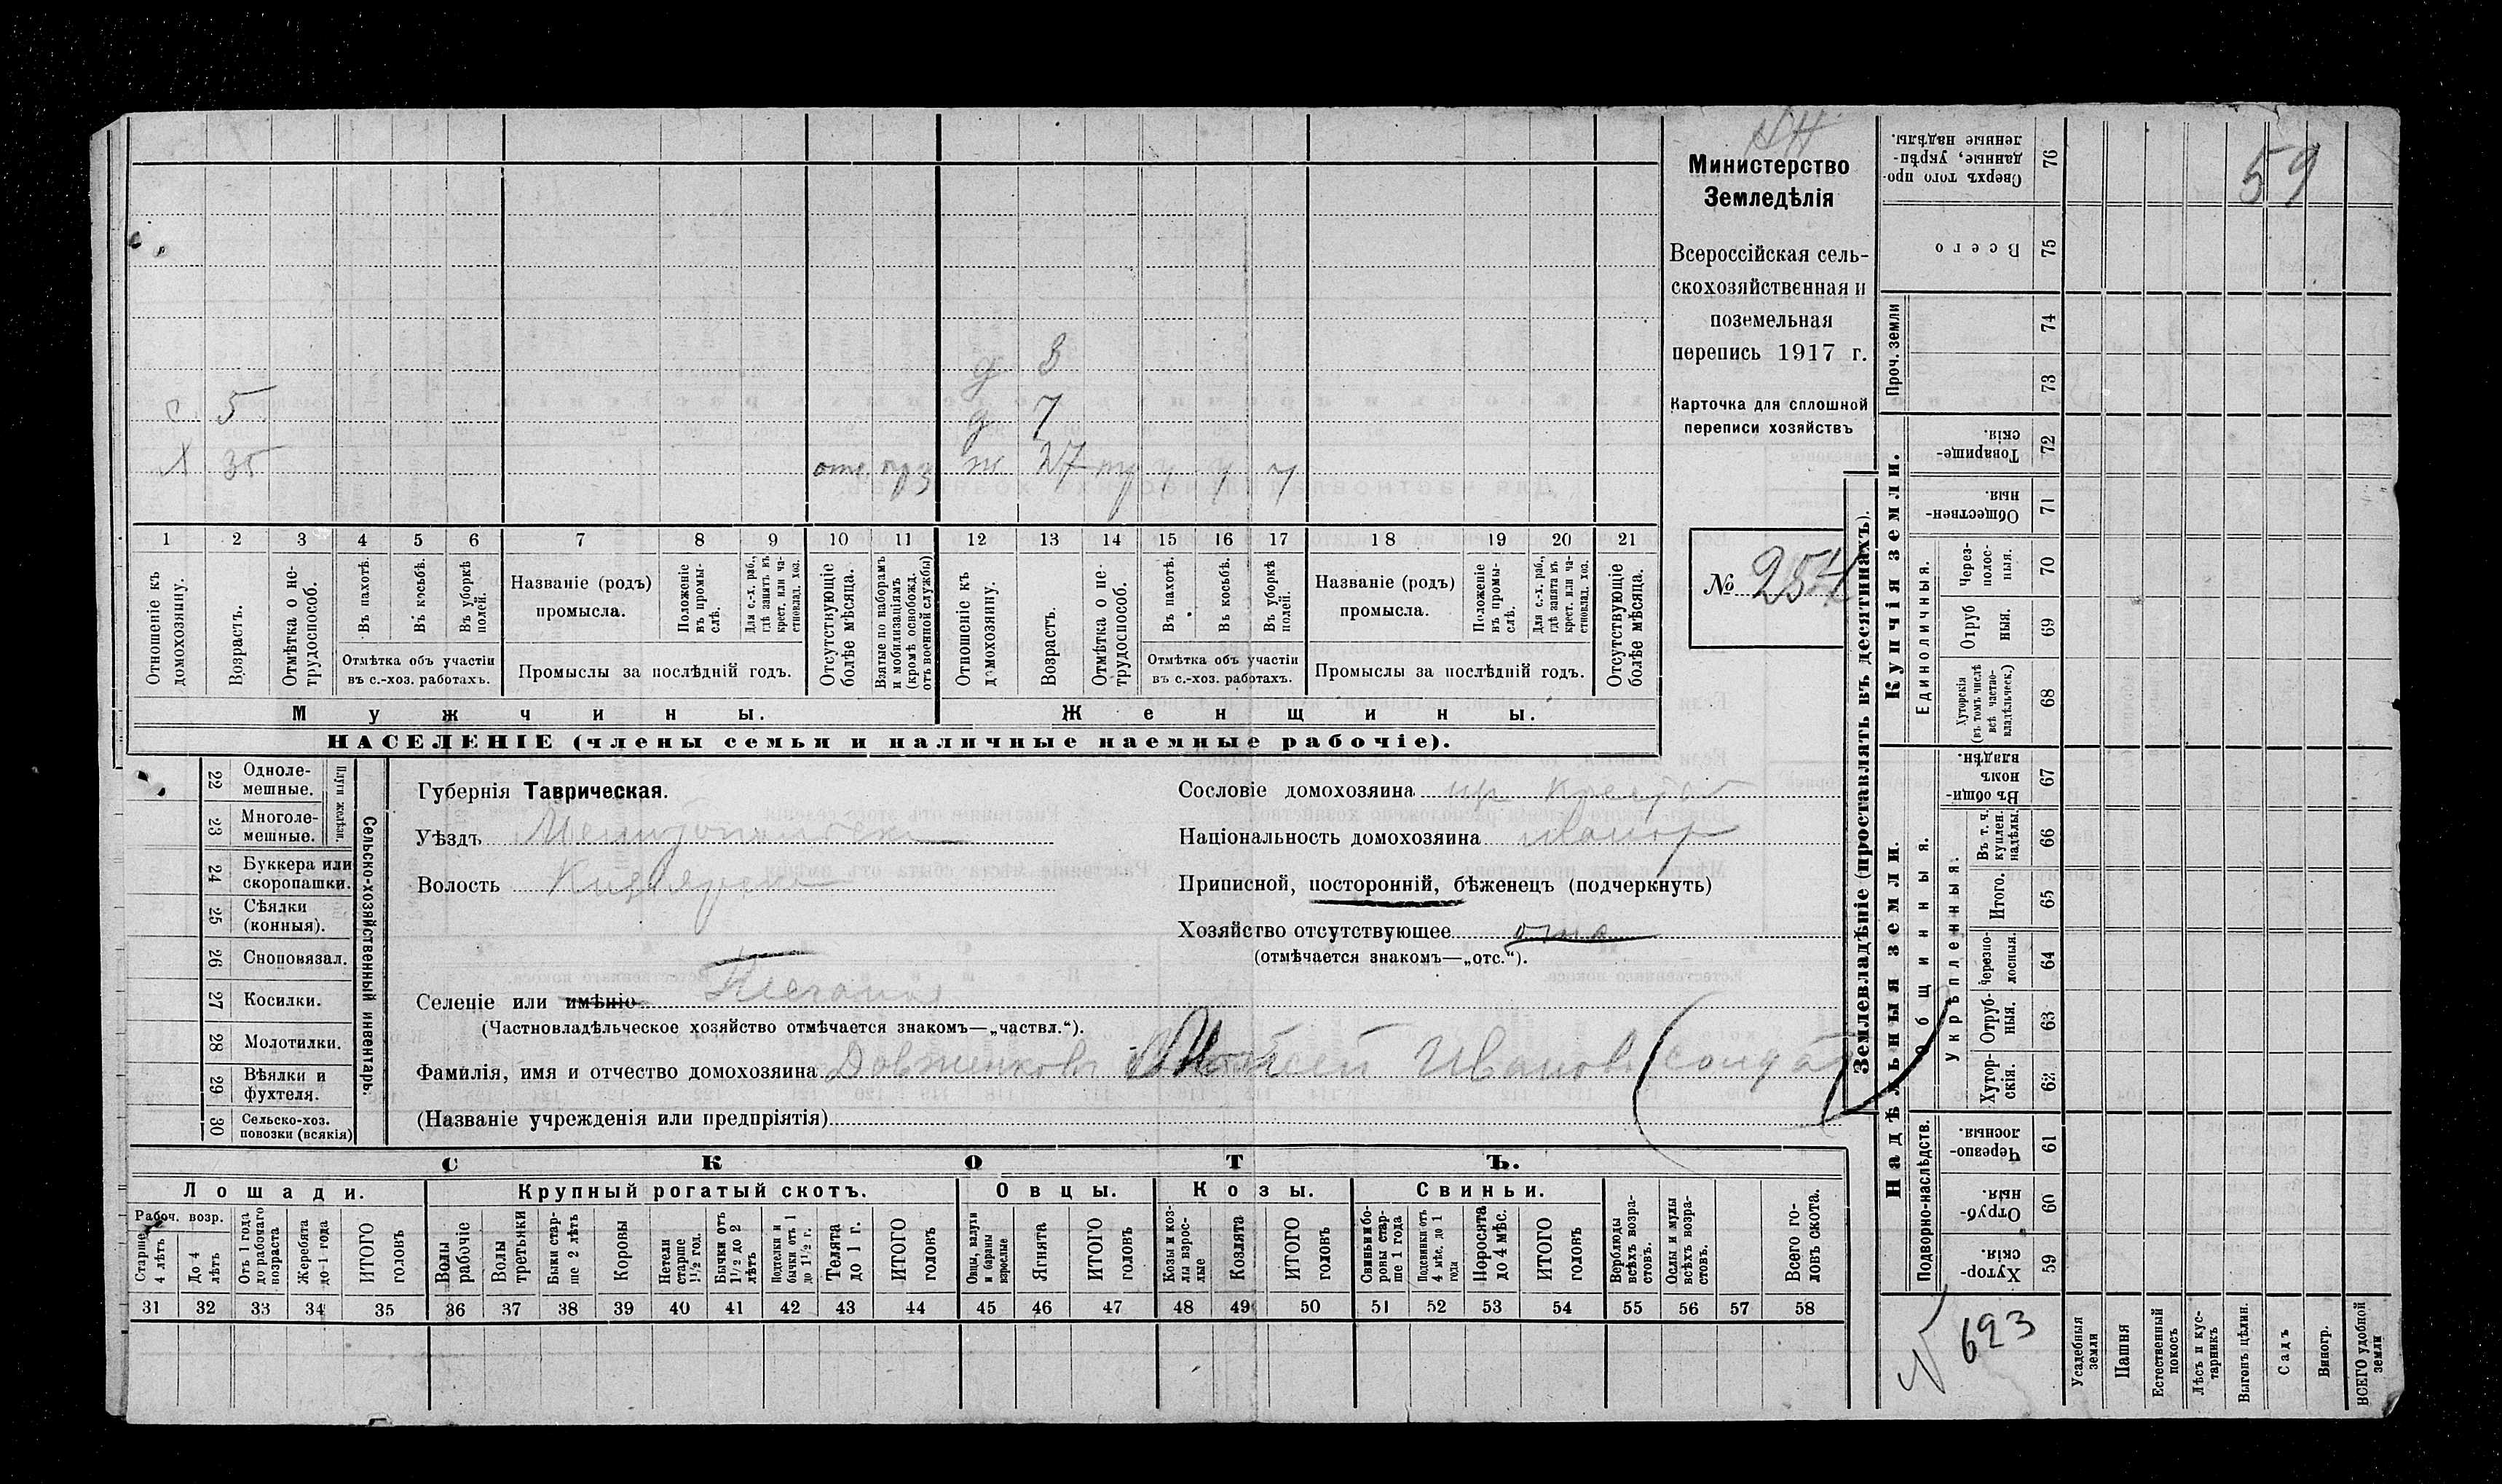 Министерство
Земледѣлія
Всероссійская сель-
скохозяйственная и
поземельная
перепись 1917 г.
Карточка для сплошной
переписи хозяйствъ
№ 254
59
д 3
с 5 д 7
Х 35 отс. ж 27
1 2 3 4 5 6 7 8 9 10 11 12 13 14 15 16 17 18 19 20 21
Отношеніе къ домохозяину.
Возрастъ.
Отмѣтка о не-трудоспособ.
Въ пахотѣ.
Въ косьбѣ.
Въ уборкѣ полей.
Отмѣтка объ участіи въ с.-хоз. работахъ.
Названіе (родъ) промысла.
Положеніе въ промы-слѣ.
Для с.-х. раб., гдѣ занятъ въ крест. или ча-стновлад. хоз.
Промыслы за послѣдній годъ.
Отсутствующіе болѣе мѣсяца.
Взятые по наборамъ и мобилизаціямъ (кромѣ освобожд. отъ военной службы)
Отношеніе къ домохозяину.
Возрастъ.
Отмѣтка о не-трудоспособ.
Въ пахотѣ.
Въ косьбѣ.
Въ уборкѣ полей.
Отмѣтка объ участіи въ с.-хоз. работахъ.
Названіе (родъ) промысла.
Положеніе въ промы-слѣ.
Для с.-х. раб., гдѣ занята въ крест. или ча-стновлад. хоз.
Промыслы за послѣдній годъ.
Отсутствующіе болѣе мѣсяца.
Мужчины. Женщины.
НАСЕЛЕНІЕ (члены семьи и наличные наемные рабочіе).
22 Одноле-мешные.
23 Многоле-мешные.
Плуги желѣзн.
24 Буккера или скоропашки.
25 Сѣялки (конныя).
26 Сноповязал.
27 Косилки.
28 Молотилки.
29 Вѣялки и фухтеля.
30 Сельско-хоз. повозки (всякія)
Сельско-хозяйственный инвентарь.
Губернія Таврическая.
Уѣздъ Мелитопольск
Волость Кизлярск
Селеніе или имѣніе
(Частновладѣльческое хозяйство отмѣчается знакомъ—„частвл.“).
Фамилія, имя и отчество домохозяина Довженковъ Иванов (солдат)
(Названіе учрежденія или предпріятія)
Сословіе домохозяина
Національность домохозяина малор
Приписной, посторонній, бѣженецъ (подчеркнуть)
Хозяйство отсутствующее отс
(отмѣчается знакомъ—„отс.“).
СКОТЪ.
Лошади. Крупный рогатый скотъ. Овцы. Козы. Свиньи.
Рабоч. возр.
Старше 4 лѣтъ
До 4 лѣтъ
Отъ 1 года до рабочаго возраста
Жеребята до 1 года
ИТОГО головъ
Волы рабочіе
Волы третьяки
Быки стар-ше 2 лѣтъ
Коровы
Нетели старше 1½ год.
Бычки отъ 1½ до 2 лѣтъ
Подтелки и бычки отъ 1 до 1½ г.
Телята до 1 г.
ИТОГО головъ
Овцы, валухи и бараны взрослые
Ягнята
ИТОГО головъ
Козы и коз-лы взрос-лые
Козлята
ИТОГО головъ
Свиньи и бо-ровы стар-ше 1 года
Подсвинки отъ 4 мѣс. до 1 года
Поросята до 4 мѣс.
ИТОГО головъ
Верблюды всѣхъ возра-стовъ.
Ослы и мулы всѣхъ возра-стовъ.
Всего го-ловъ скота.
31 32 33 34 35 36 37 38 39 40 41 42 43 44 45 46 47 48 49 50 51 52 53 54 55 56 57 58
Землевладѣніе (проставлять въ десятинахъ).
76 Сверхъ того про-данные, укрѣп-ленные надѣлы.
75 Всего
Проч. земли
74
73
Купчія земли.
72 Товарище-скія.
71 Обществен-ныя.
Единоличныя.
70 Через-полос-ныя.
69 Отруб ныя.
68 Хуторскія (въ томъ числѣ всѣ частно-владѣльческ.)
Надѣльныя земли.
Общинныя.
67 Въ общи-номъ владѣн.
Укрѣпленныя.
66 Въ т. ч. куплен. надѣлы
65 Итого.
64 Черезпо-лосныя.
63 Отруб-ныя.
62 Хутор-скія.
Подворно-наслѣдств.
61 Черезпо-лосныя.
60 Отруб-ныя.
59 Хутор-скія.
N 693
Усадебныя земли
Пашня
Естественный покосъ
Лѣсъ и кус-тарникъ
Выгонъ цѣлин.
Садъ
Виногр.
ВСЕГО удобной земли